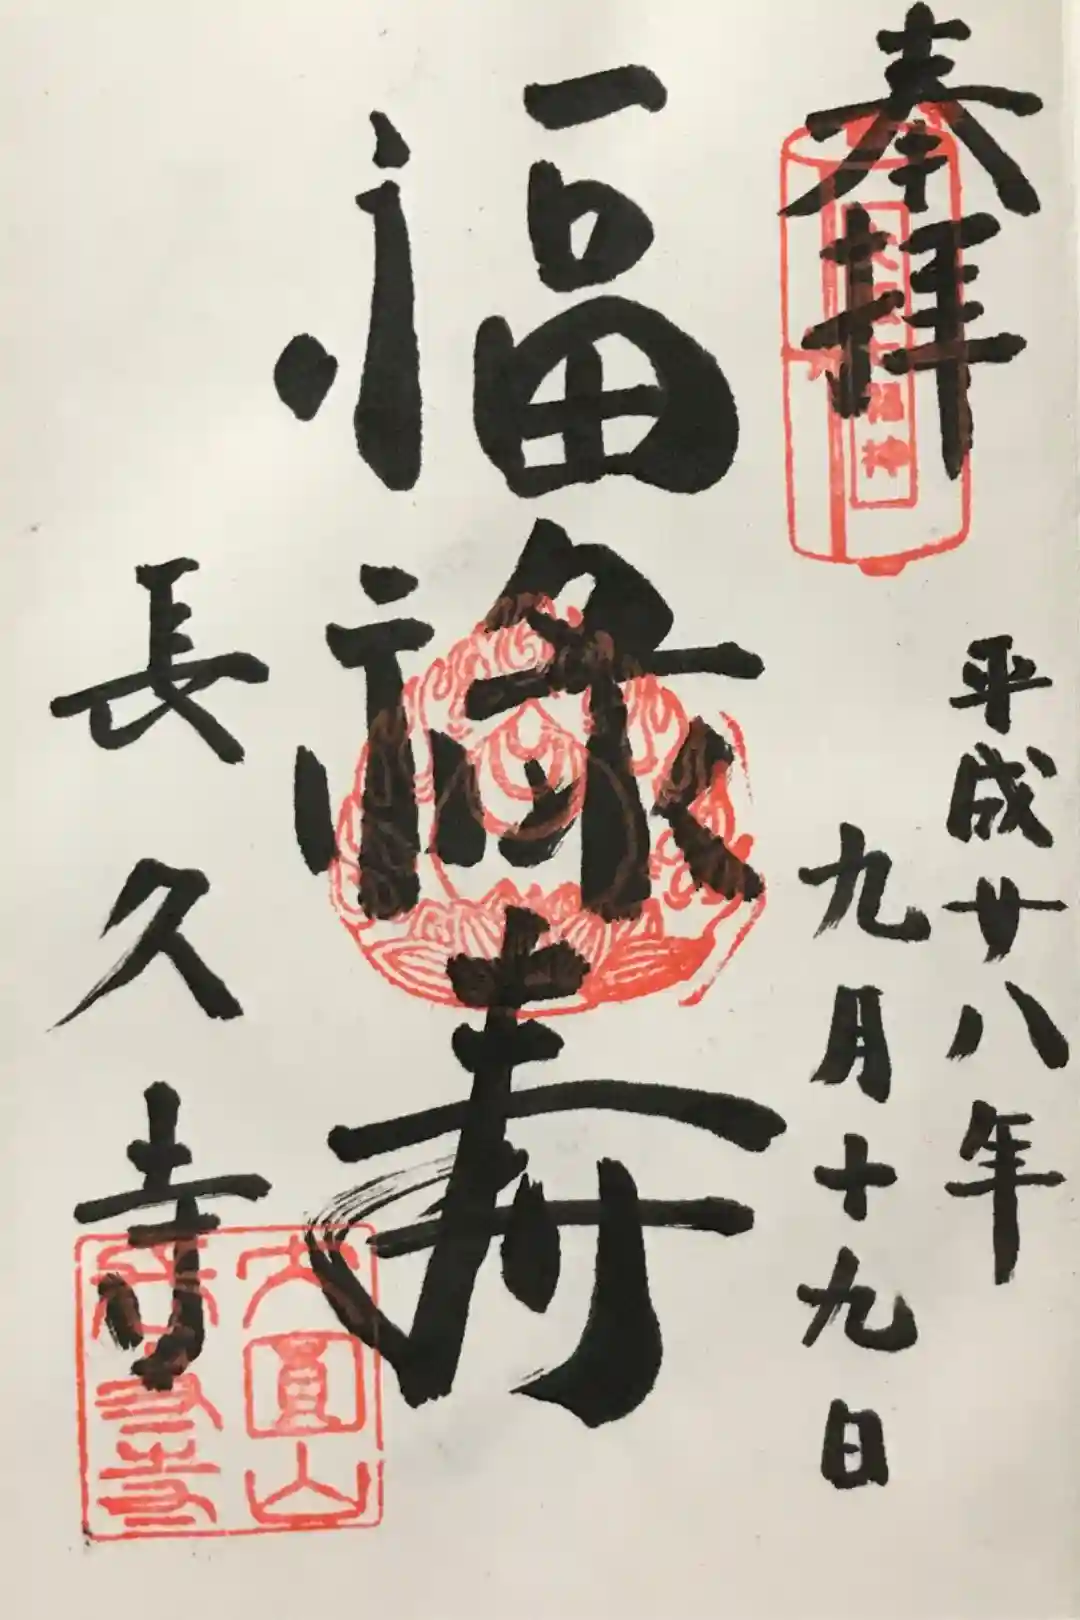 奉拝
平成廿八年
九月十九日
福禄寿
長久寺
大圓山